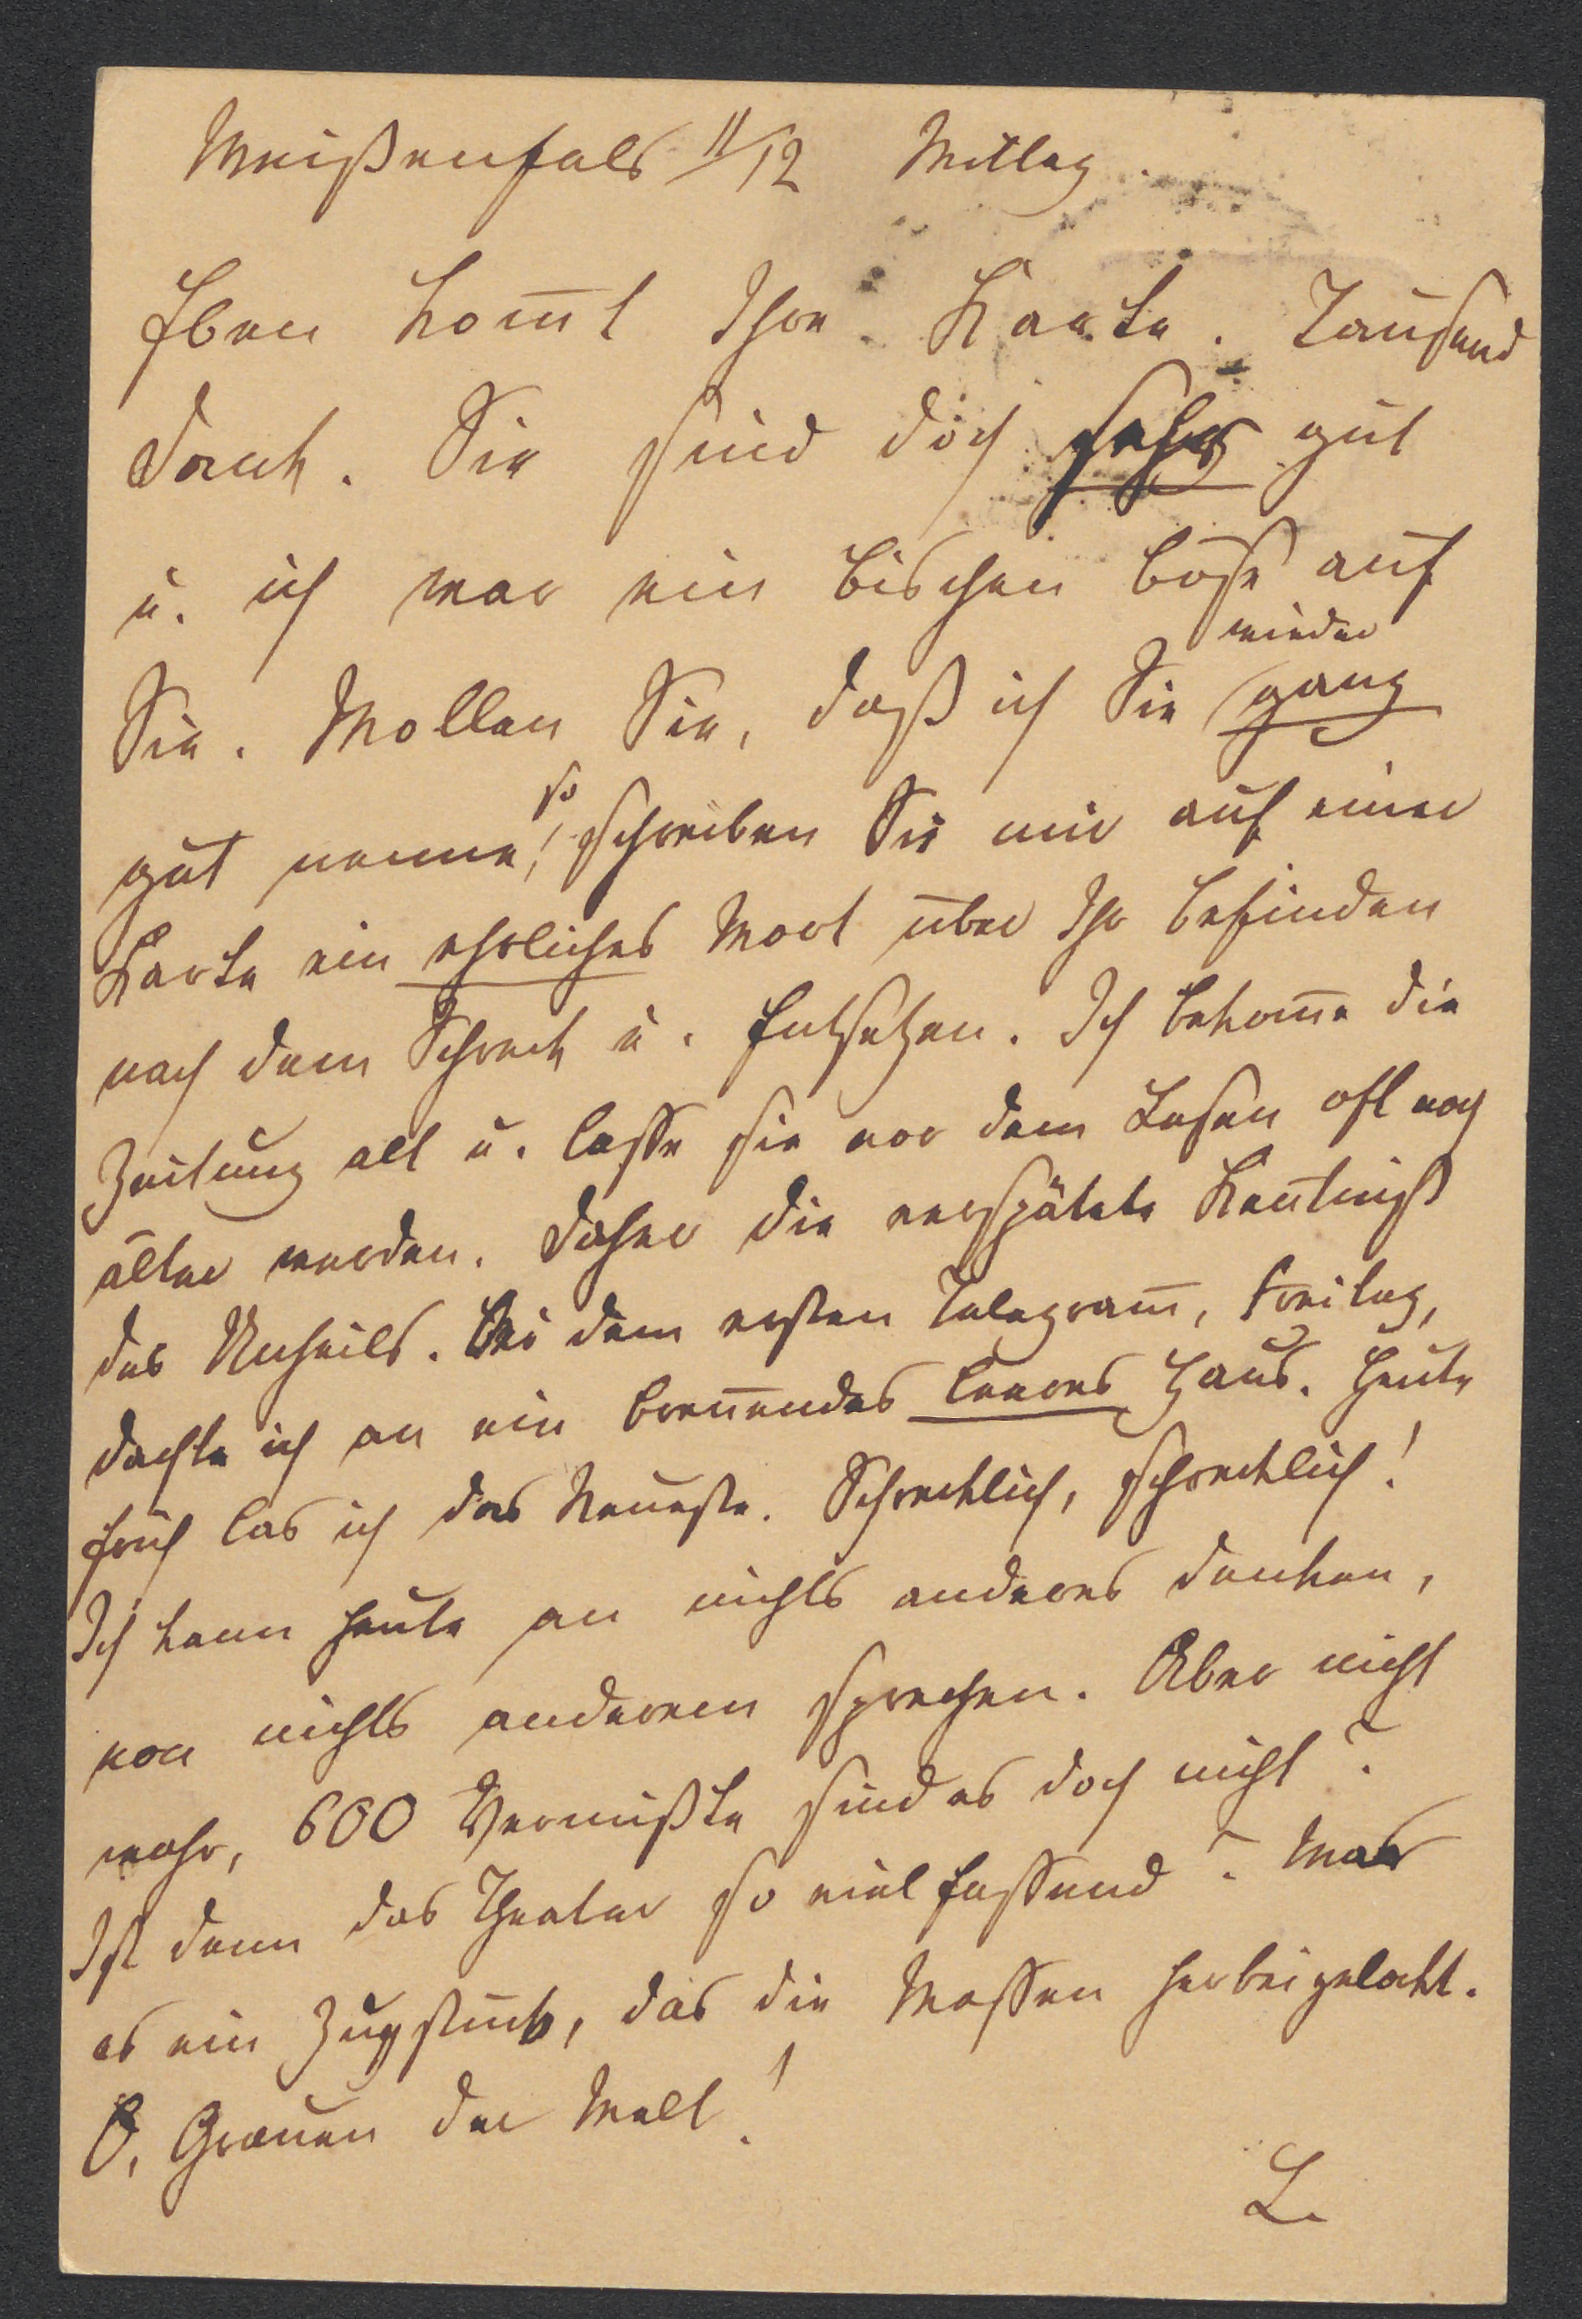 Weißenfels 11/12 Mittag.
Eben kom̅t Ihre Karte. Tausend
Dank. Sie sind doch sehr gut
u. ich war ein bischen böse auf
Sie. Wollen Sie, daß ich Sie wieder ganz
gut nenne, so schreiben Sie mir auf einer
Karte ein ehrliches Wort über Ihr Befinden
nach dem Schreck u. Entsetzen. Ich bekom̅e die
Zeitung alt u. lasse sie vor dem Lesen oft noch
älter werden. Daher die verspätete Ken̅tniß
des Unheils. Bei dem ersten Telegram̅, Freitag,
dachte ich an ein bren̅endes leeres Haus. Heute
früh las ich das Neueste. Schrecklich, schrecklich!
Ich kann heute an nichts anderes denken,
von nichts anderem sprechen. Aber nicht
wahr, 600 Vermißte sind es doch nicht?
Ist denn das Theater so viel fassend? War
es ein Zugstück, das die Massen herbeigelockt.
O, Grauen der Welt!
L.